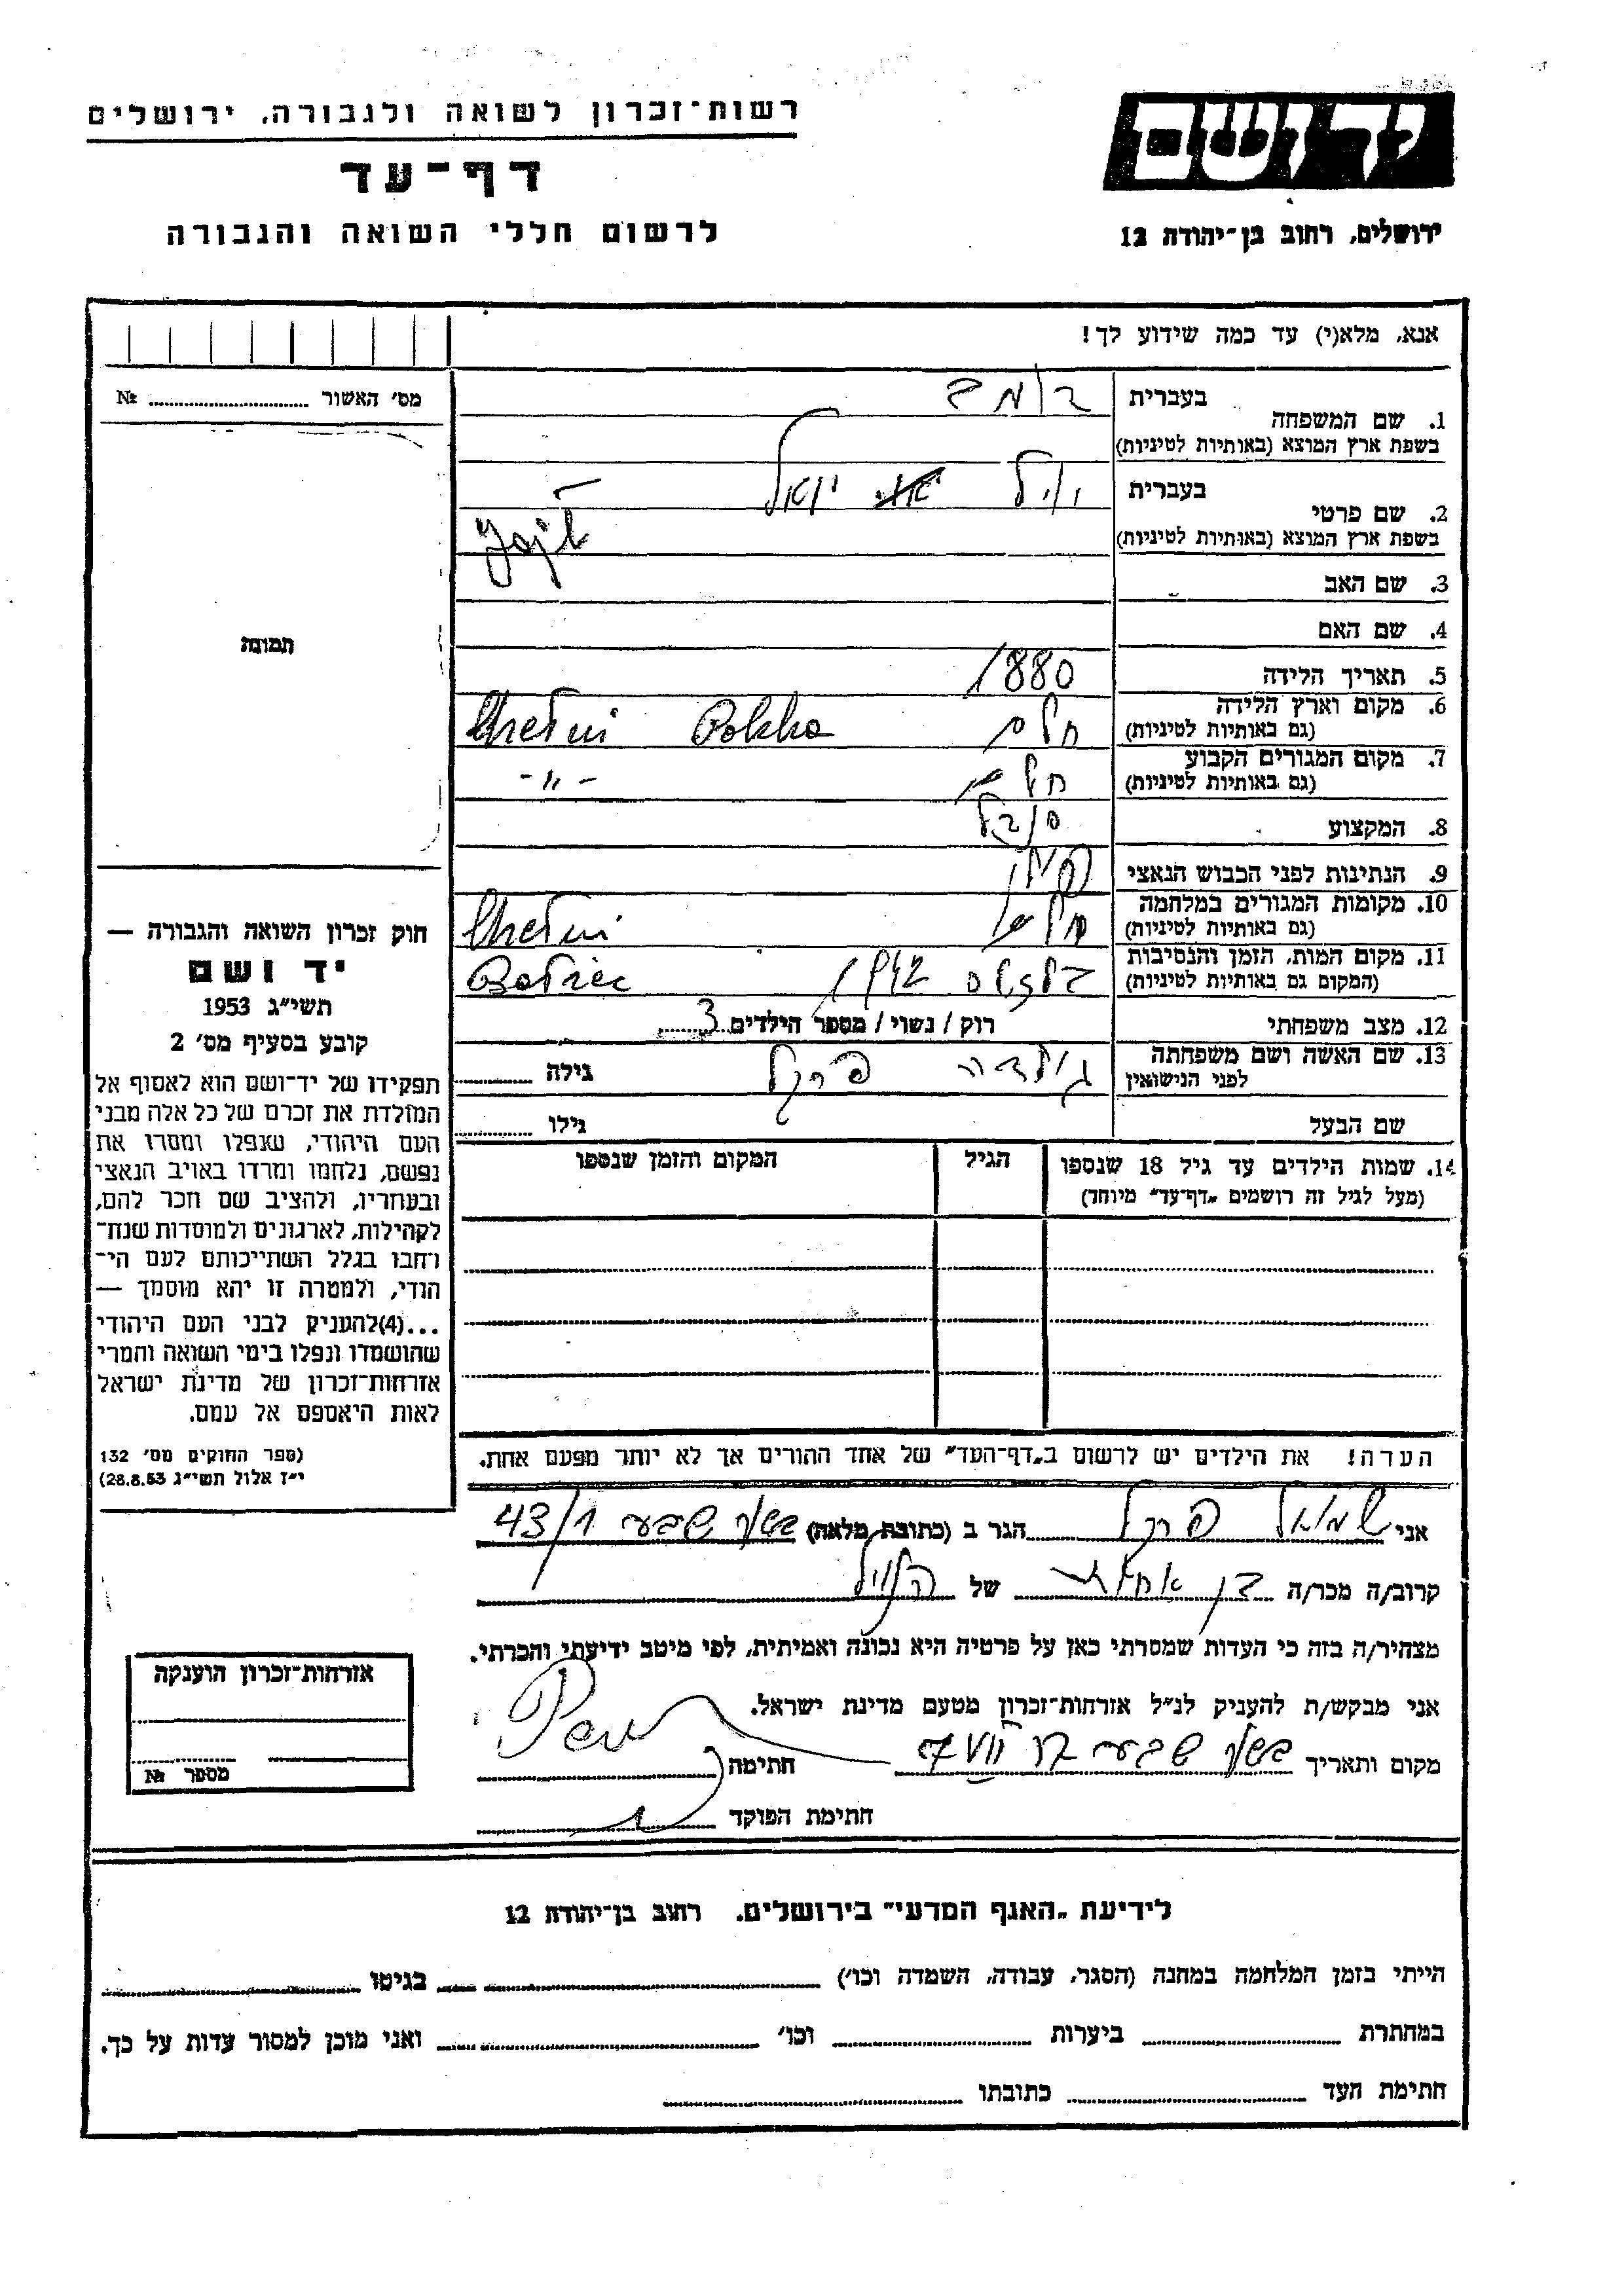 רשות־זכרון לשואה ולגבורה, ירושלים
דף־עד
לרשום חללי השואה והגבורה
יד ושם
ירושלים, רחוב בן־יהודה 12
אנא, מלא(י) עד כמה שידוע לך!
מס׳ האשור № 
תמונה
בעברית
1. שם המשפחה
בשפת ארץ המוצא (באותיות לטיניות)
בעברית יואל
2. שם פרטי
בשפת ארץ המוצא (באותיות לטיניות)
3. שם האב
4. שם האם
5. תאריך הלידה 1880
6. מקום וארץ הלידה חלם Polska Chełm
(גם באותיות לטיניות)
7. מקום המגורים הקבוע חלם -"-
(גם באותיות לטיניות)
8. המקצוע סובל
9. הנתינות לפני הכבוש הנאצי פולני
10. מקומות המגורים במלחמה חלם Chełm
(גם באותיות לטיניות)
11. מקום המות, הזמן והנסיבות 1942 Bełżec
(המקום גם באותיות לטיניות)
12. מצב משפחתי רוק / נשוי / מספר הילדים 3
13. שם האשה ושם משפחתה גולדה פרקל גילה
לפני הנישואין
שם הבעל גילו
14. שמות הילדים עד גיל 18 שנספו הגיל המקום והזמן שנספו
(מעל לגיל זה רושמים „דף־עד״ מיוחד)
הערה! את הילדים יש לרשום ב„דף־העד״ של אחד ההורים אך לא יותר מפעם אחת.
חוק זכרון השואה והגבורה —
יד ושם
תשי״ג 1953
קובע בסעיף מס׳ 2
תפקידו של יד־ושם הוא לאסוף אל
המולדת את זכרם של כל אלה מבני
העם היהודי, שנפלו ומסרו את
נפשם, נלחמו ומרדו באויב הנאצי
ובעוזריו, ולהציב שם וזכר להם,
לקהילות, לארגונים ולמוסדות שנח־
רבו בגלל השתייכותם לעם הי־
הודי, ולמטרה זו יהא מוסמך —
...(4)להעניק לבני העם היהודי
שהושמדו ונפלו בימי השואה והמרי
אזרחות־זכרון של מדינת ישראל
לאות היאספם אל עמם.
(ספר החוקים מס׳ 132
י״ז אלול תשי״ג 28.8.53)
אני שמואל פרקל הגר ב (כתובת מלאה) באר שבע 43/1
קרוב/ה מכר/ה בן אחות של הנ״ל
מצהיר/ה בזה כי העדות שמסרתי כאן על פרטיה היא נכונה ואמיתית, לפי מיטב ידיעתי והכרתי.
אני מבקש/ת להעניק לנ״ל אזרחות־זכרון מטעם מדינת ישראל.
מקום ותאריך באר שבע חתימה
חתימת הפוקד
אזרחות־זכרון הוענקה
מספר №
לידיעת „האגף המדעי״ בירושלים, רחוב בן־יהודה 12
הייתי בזמן המלחמה במחנה (הסגר, עבודה, השמדה וכו׳) בגיטו
במחתרת ביערות וכו׳ ואני מוכן למסור עדות על כך.
חתימת העד כתובתו